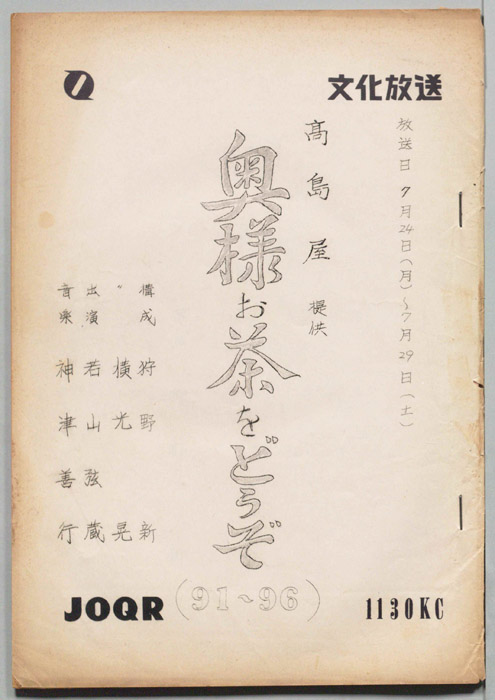 文化放送
放送日 7月24日(月)～7月29日(土)
髙島屋 提供
奥様お茶をどうぞ
(91～96)
構成 狩野 新
〃 横光 晃
出演 若山弦蔵
音楽 神津善行
JOQR
1130KC